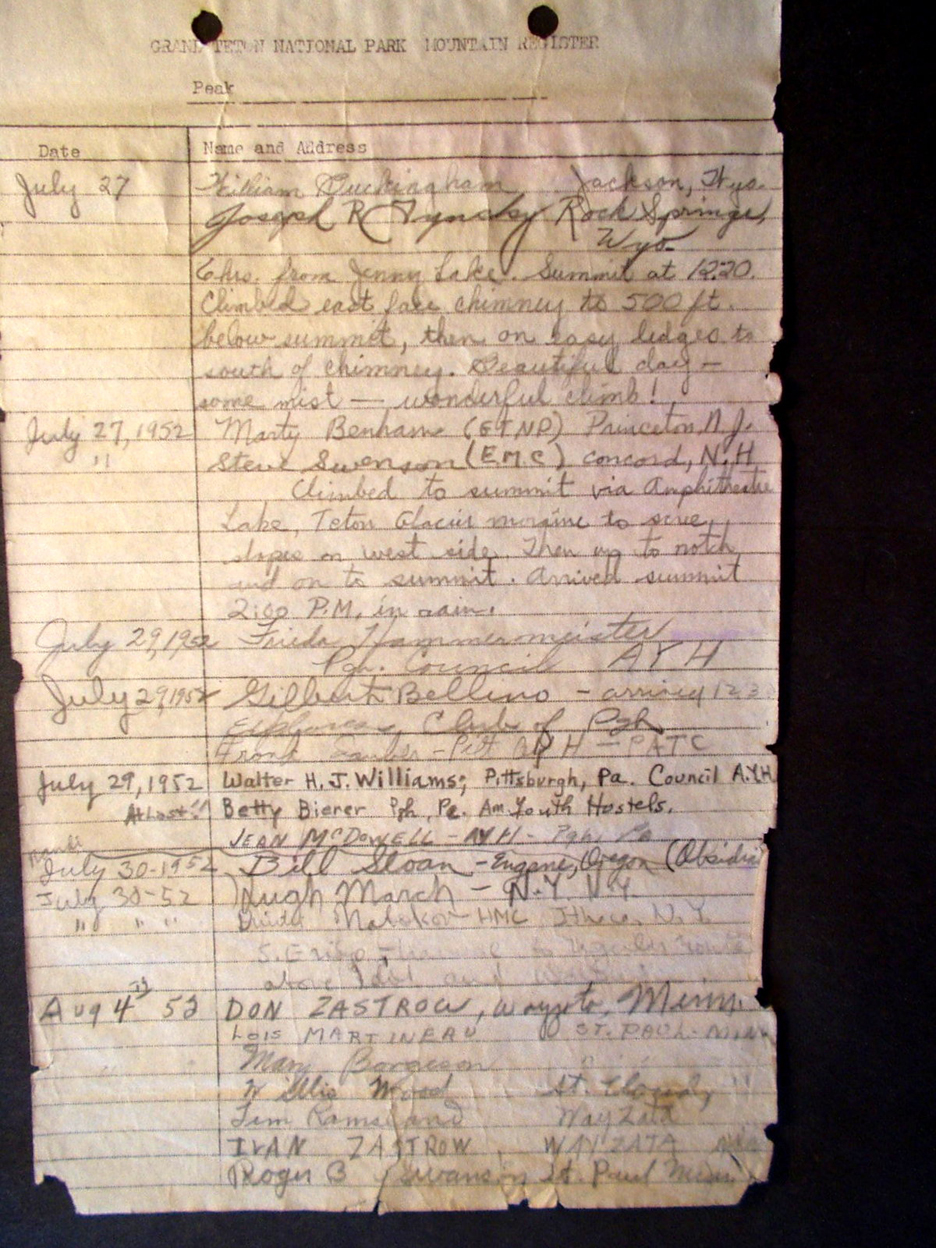 GRAND TETON NATIONAL PARK MOUNTAIN REGISTER
Peak
Date Name and Address
July 27 William Buckingham Jackson, Wyo.
Joseph R Rock Springs,
Wyo
6 hrs. from Jenny Lake. Summit at 12:20.
Climbed east face chimney to 500 ft.
below summit, then on easy ledges to
south of chimney. Beautiful day —
some mist — wonderful climb!
July 27, 1952 Marty Benham (GTNP) Princeton, N.J.
" Steve Swenson (EMC) Concord, N.H.
Climbed to summit via Amphitheatre
Lake, Teton Glacier moraine to
slopes on west side. Then up to notch
and on to summit. Arrived summit
2:00 P.M. in rain.
July 29, 1952 Frieda Hammermeister
Pgh. Council AYH
July 29, 1952 Gilbert Bellino - arrived 12:3
Explorers Club of Pgh
Frank - PATC
July 29, 1952 Walter H. J. Williams; Pittsburgh, Pa. Council A.Y.H.
At Last!! Betty Bierer Pgh, Pa. Am. Youth Hostels.
JEAN McDOWELL - AYH - Pgh. Pa
July 30-1952 Bill Sloan - Eugene, Oregon (Obsidian
July 30-52 Hugh March - N.Y. N.Y.
" " " HMC Ithaca, N.Y.
above and
Aug 4th 52 DON ZASTROW, Wayzata, Minn.
LOIS MARTINEAU ST. PAUL - MINN
Mary Borgeson
Wood St. Cloud, "
Wayzata
IVAN ZASTROW, WAYZATA
Roger B Swanson St. Paul Minn